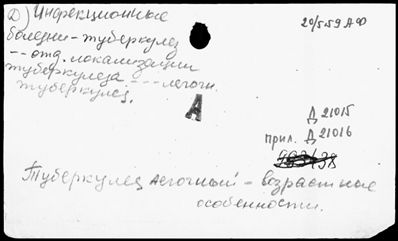 Д) Инфекционные
болезни - туберкулез
-- отд. локализации
туберкулеза --- легочн.
туберкулез.
20/5 59 АФ
А
Д 21015
прил. Д 21016
Туберкулез легочный - возрастные
особенности.